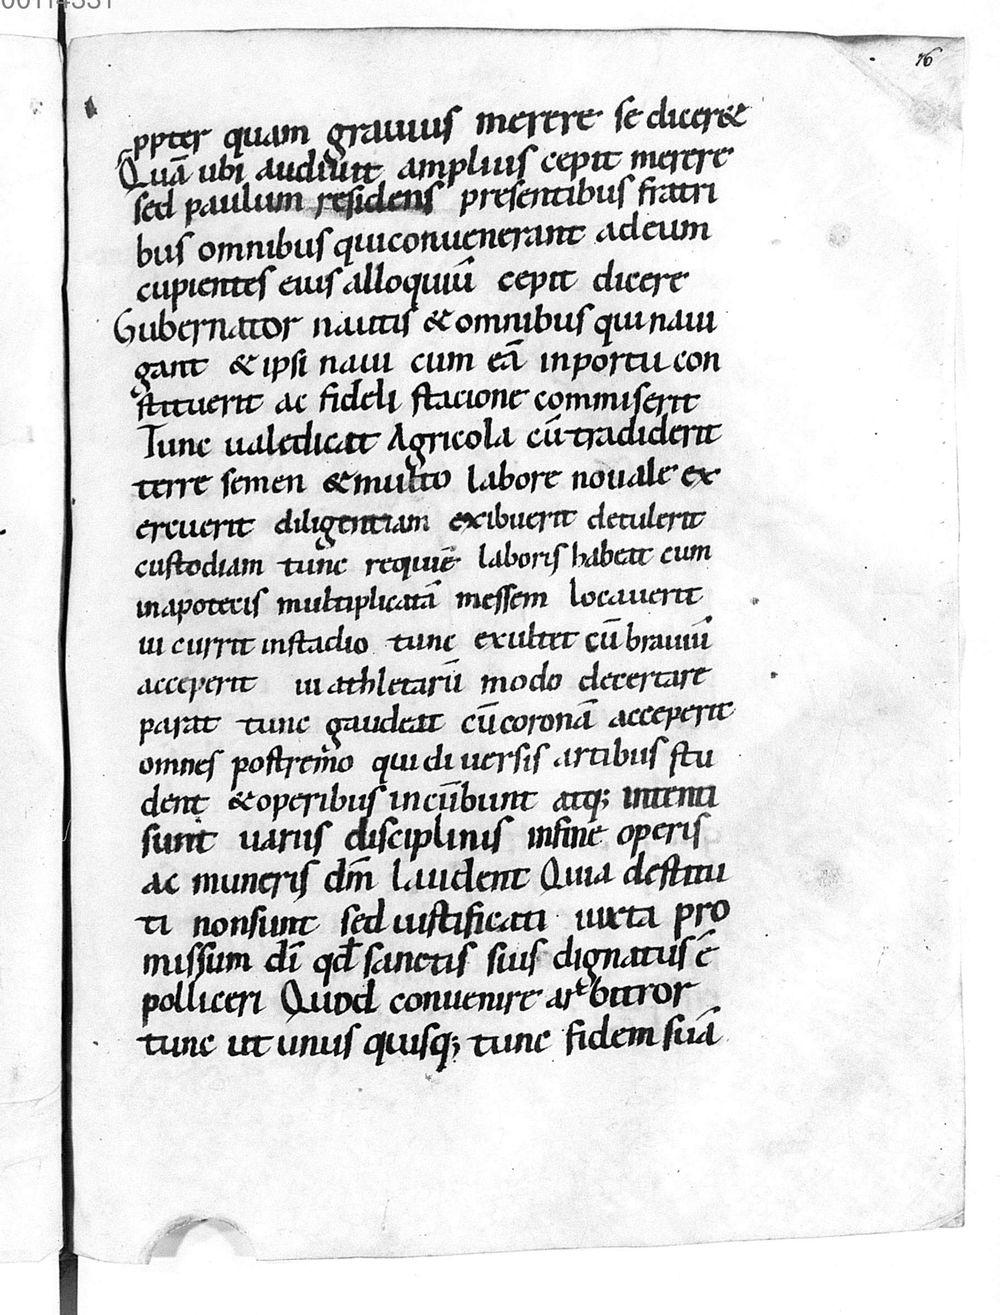 00114331
76
ꝓpter quam grauius merere se dicer&
Quā ubi audiuit amplius cepit merere
sed paulum residens presentibus fratri
bus omnibus quiconuenerant adeum
cupientes eius alloquiū cepit dicere
Gubernator nautis &omnibus quinaui
gant & ipsi naui cum eā inportu con
stituerit ac fideli stacione commiserit
Tunc ualedicat Agricola cū tradiderit
terre semen &multo labore nouale ex
ercuerit diligentiam exibuerit detulerit
custodiam tunc requiē laboris habeat cum
inapotecis multiplicatā messem locauerit
ui currit instadio tunc exultet cū brauiū
acceperit ui athletarū modo decertare
parat tunc gaudeat cū coronā acceperit
omnes postremo qui diuersis artibus stu
dent &operibus incūbunt atq; intenti
sunt uariis disciplinis infine operis
ac muneris dm̄ laudent Quia destitu
ti nonsunt sed iustificati iuxta pro
missum dī qd̄ sanctis suis dignatus ē
polliceri Quod conuenire arbitror
tunc ut unus quisq; tunc fidem suā